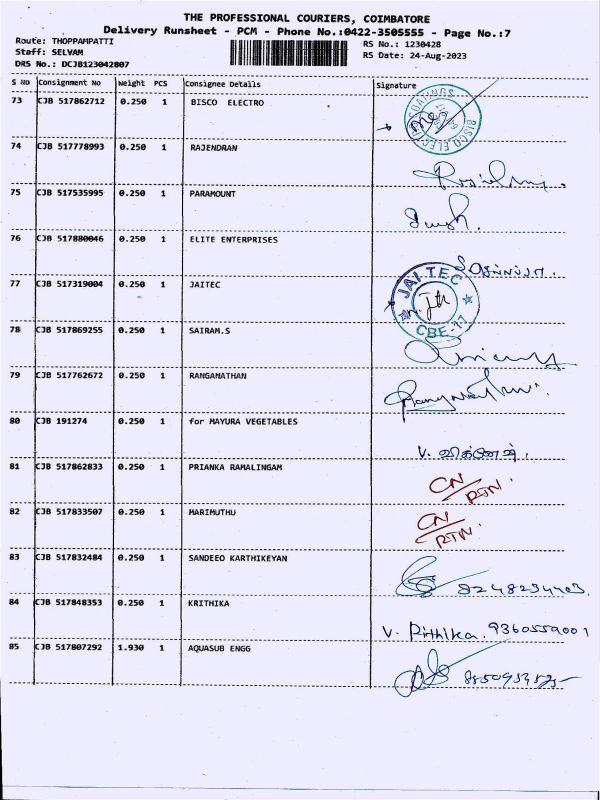 THE PROFESSIONAL COURIERS, COIMBATORE
Delivery Runsheet - PCM - Phone No.:0422-3505555 - Page No.:7
Route: THOPPAMPATTI RS No.: 1230428
Staff: SELVAM RS Date: 24-Aug-2023
DRS No.: DCJB123042807
S No Consignment No Weight PCS Consignee Details Signature
73 CJB 517862712 0.250 1 BISCO ELECTRO
74 CJB 517778993 0.250 1 RAJENDRAN
75 CJB 517535995 0.250 1 PARAMOUNT
76 CJB 517880046 0.250 1 ELITE ENTERPRISES
77 CJB 517319004 0.250 1 JAITEC JAI TEC CBE-17
78 CJB 517869255 0.250 1 SAIRAM.S
79 CJB 517762672 0.250 1 RANGANATHAN
80 CJB 191274 0.250 1 for MAYURA VEGETABLES
V. விக்னேஷ்.
81 CJB 517862833 0.250 1 PRIANKA RAMALINGAM CN/RTN.
82 CJB 517833507 0.250 1 MARIMUTHU CN/RTN.
83 CJB 517832484 0.250 1 SANDEEO KARTHIKEYAN
84 CJB 517848353 0.250 1 KRITHIKA
9360559001
85 CJB 517807292 1.930 1 AQUASUB ENGG